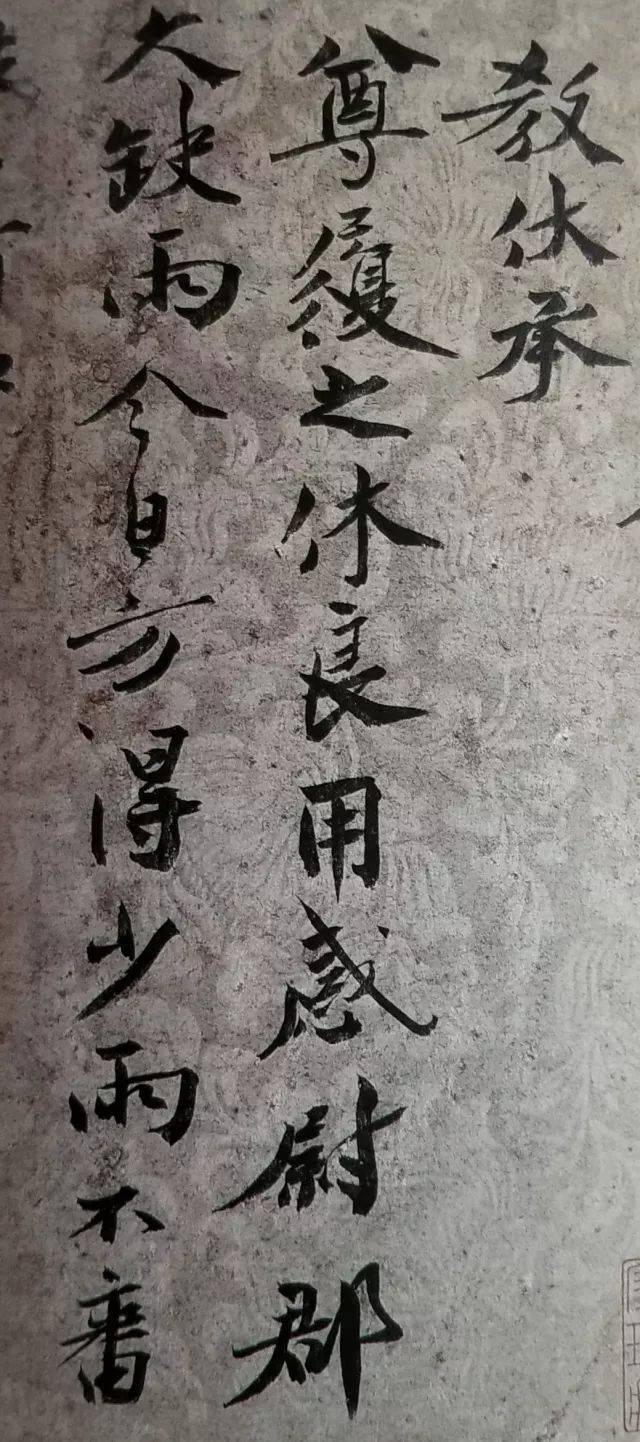 教休承
尊履之休良用感尉郡
久缺雨今日方得少雨不審